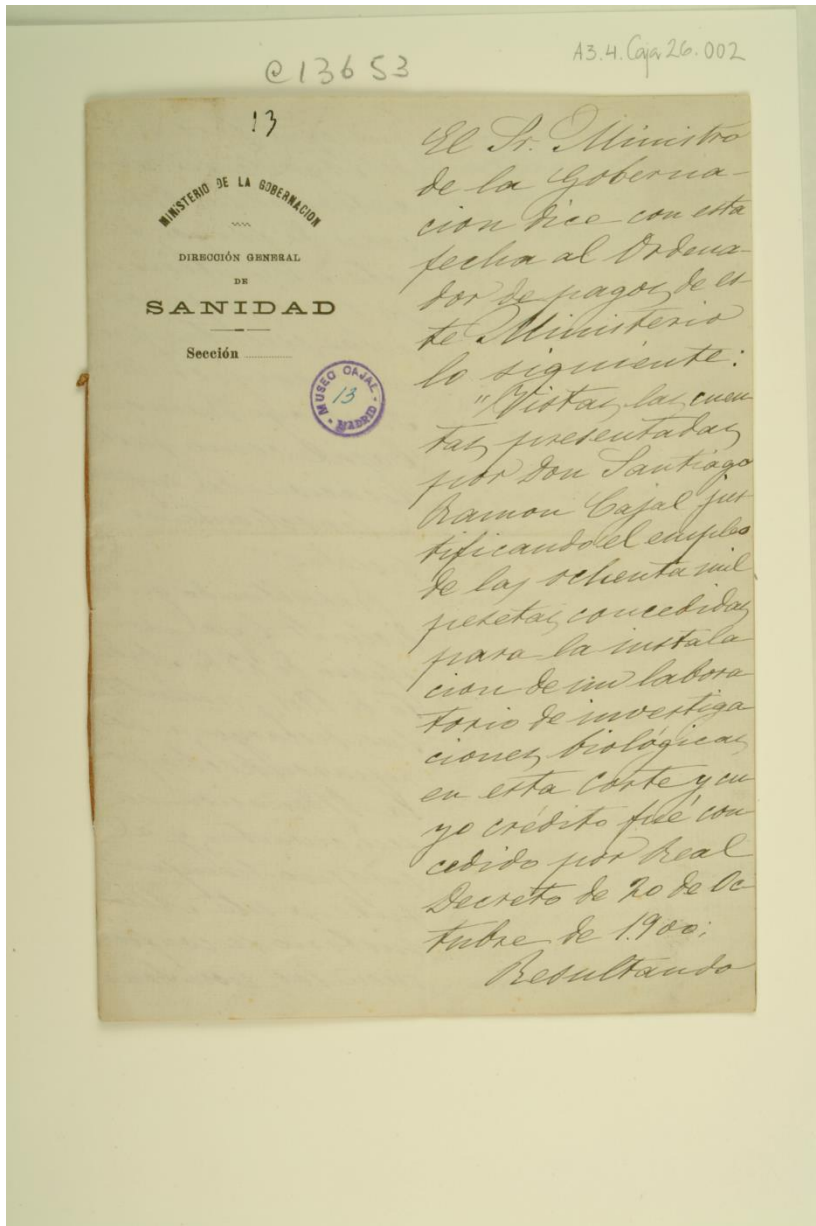 C13653
A3.4.Caja 26.002
13
MINISTERIO DE LA GOBERNACION
DIRECCIÓN GENERAL
DE
SANIDAD
Sección
MUSEO CAJAL
13
MADRID
El Sr. Ministro
de la Goberna-
cion dice con esta
fecha al Ordena-
dor de pagos de es-
te Ministerio
lo siguiente:
"Vistas las cuen
tas presentadas
por Don Santiago
Ramon Cajal jus
tificando el empleo
de las ochenta mil
pesetas concedidas
para la instala
cion de un labora
torio de investiga
ciones biológicas
en esta Corte y cu
yo crédito fué con
cedido por Real
Decreto de 20 de Oc
tubre de 1.900;
Resultando